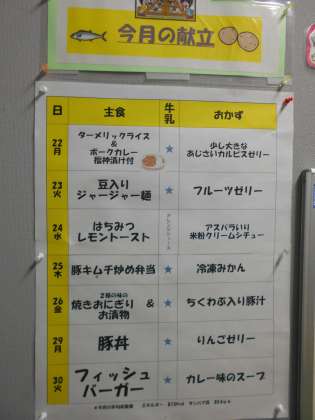 今月の献立
日 主食 牛乳 おかず
22月
ターメリックライス
&
ポークカレー
福神漬け付
★
少し大きな
あじさいカルピスゼリー
23火
豆入り
ジャージャー麺
★
フルーツゼリー
24水
はちみつ
レモントースト
アスパラいり
米粉クリームシチュー
25木
豚キムチ炒め弁当
★
冷凍みかん
26金
2種の味の
焼きおにぎり &
お漬物
★
ちくわぶ入り豚汁
29月
豚丼
★
りんごゼリー
30火
フィッシュ
バーガー
★
カレー味のスープ